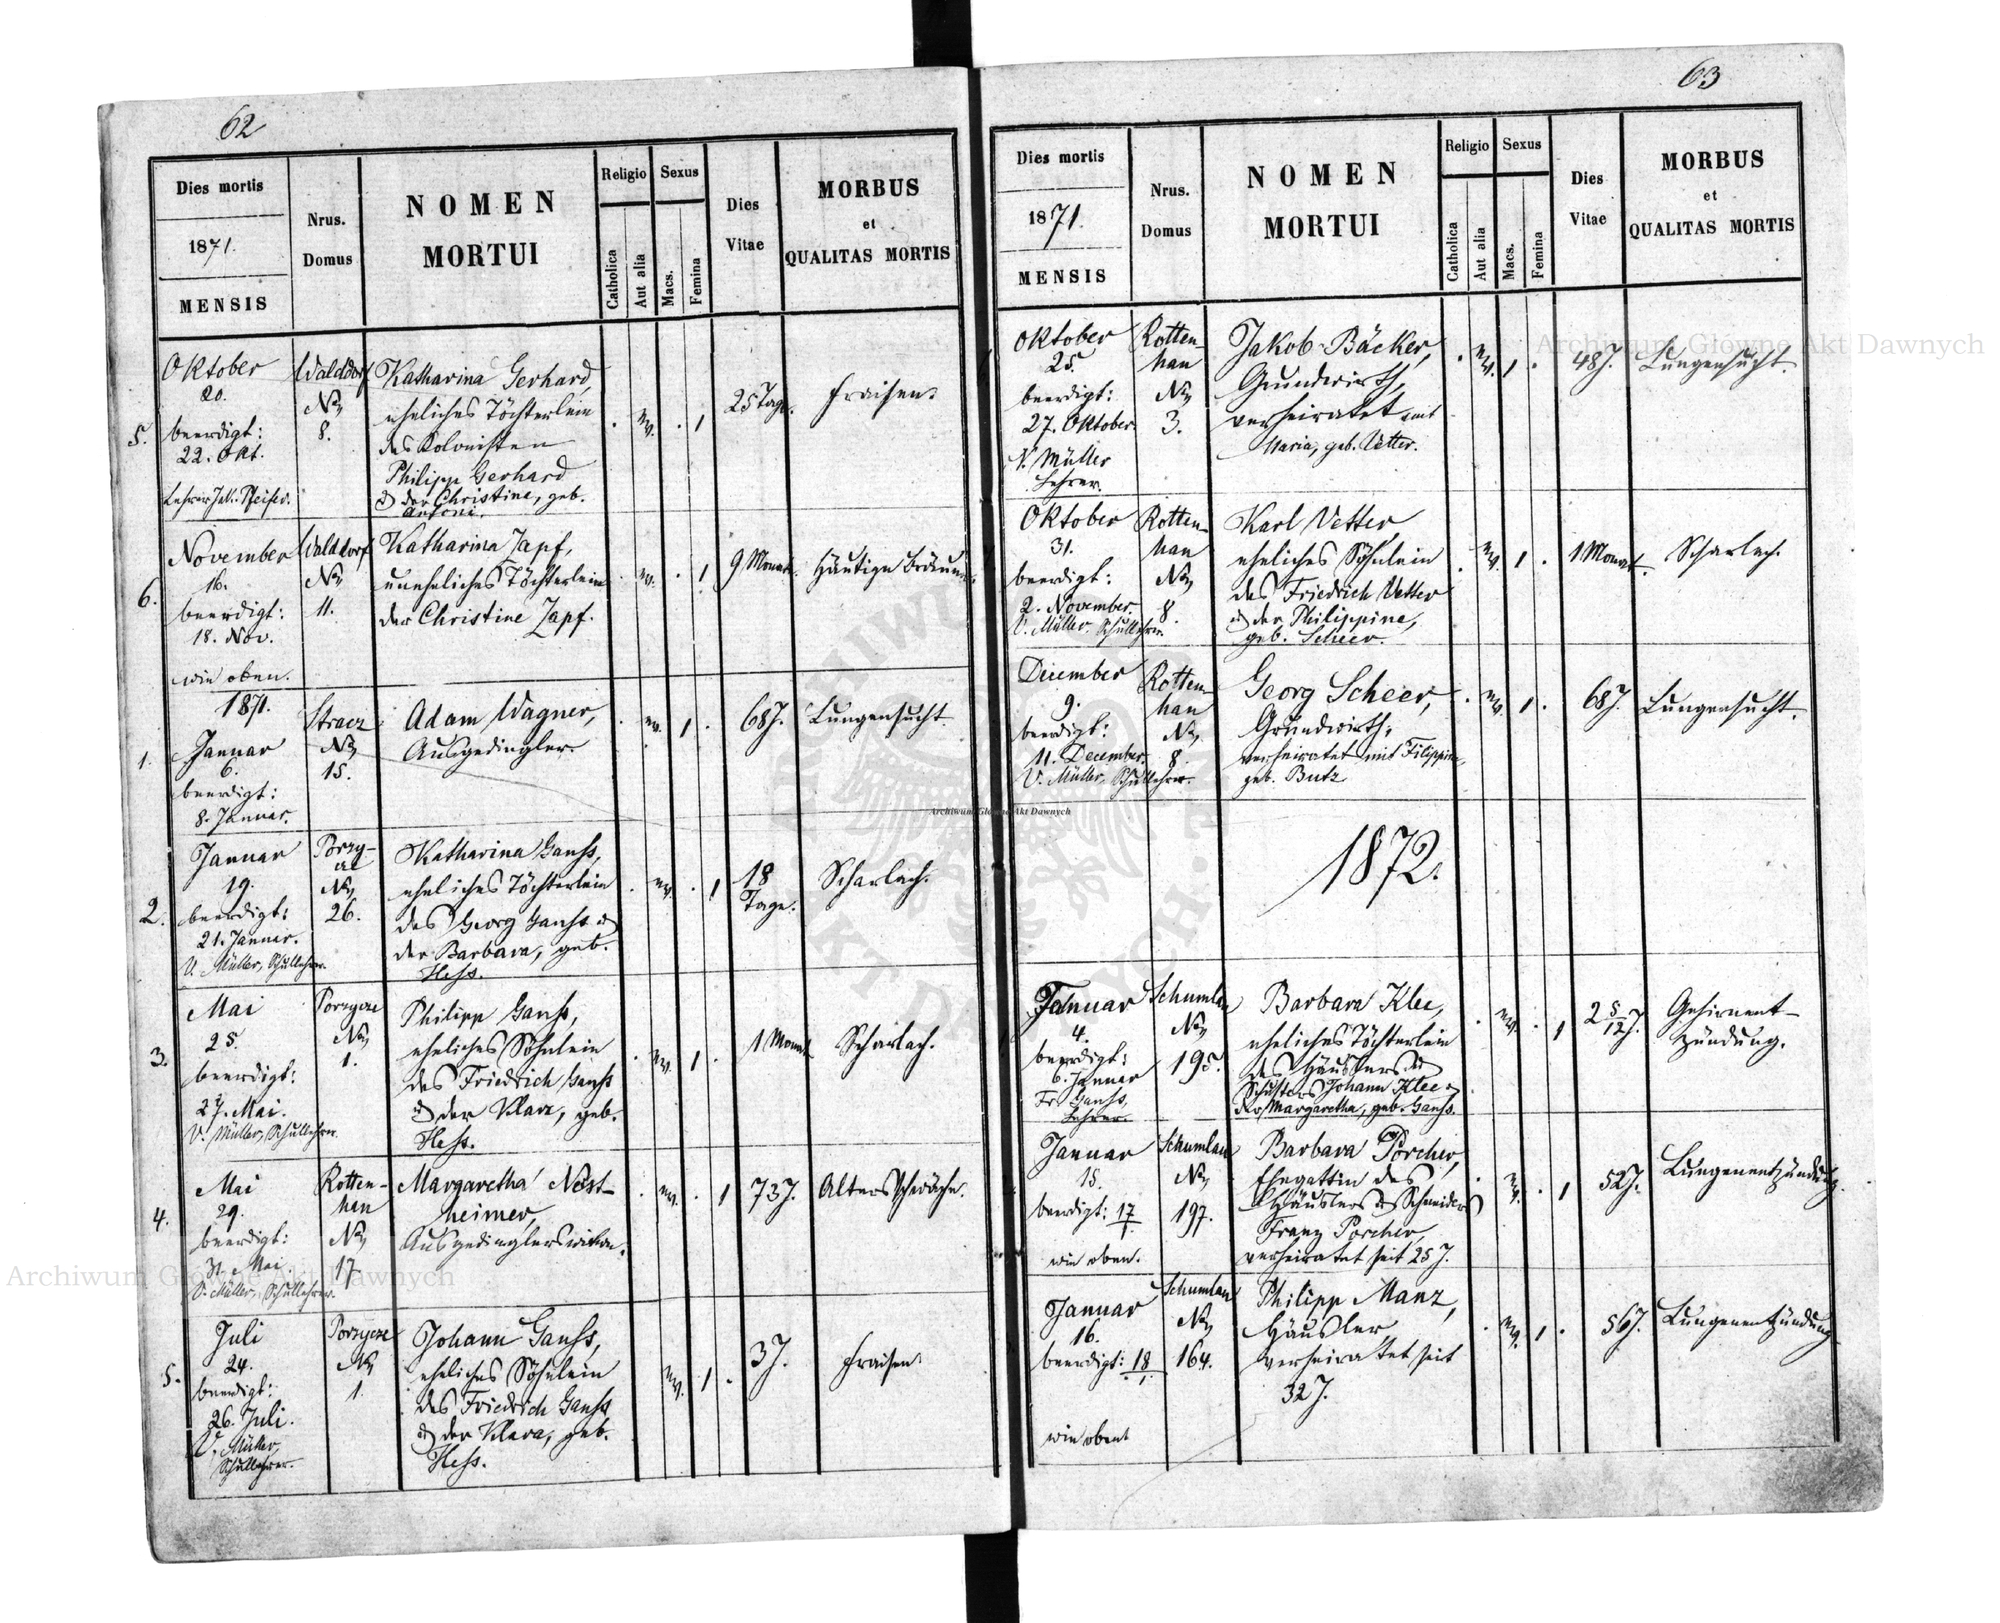 62
Dies mortis
1871.
MENSIS
Nrus.
Domus
NOMEN
MORTUI
Religio
Catholica
Aut alia
Sexus
Macs.
Femina
Dies
Vitae
MORBUS
et
QUALITAS MORTIS
5.
Oktober
20.
beerdigt:
22. Okt.
Lehrer Jak. Pfeifer.
Walddorf
No
8.
Katharina Gerhard,
eheliches Töchterlein
des Kolonisten
Philipp Gerhard
& der Christine, geb.
Antoni.
25 Tage.
Fraisen.
6.
November
16.
beerdigt:
18. Nov.
wie oben.
Walddorf
No
11.
Katharina Zapf,
uneheliches Töchterlein
der Christine Zapf.
9 Monate.
Häutige Bräune.
1871.
1.
Januar
6.
beerdigt:
8. Januar.
Stracz
No
15.
Adam Wagner,
Ausgedingler.
68 J.
Lungensucht.
2.
Januar
19.
beerdigt:
21. Januar.
V. Müller, Schullehrer.
No
26.
Katharina Ganss,
eheliches Töchterlein
des Georg Ganss &
der Barbara, geb.
Hess.
18
Tage.
Scharlach.
3.
Mai
25.
beerdigt:
27. Mai.
V. Müller, Schullehrer.
Porzycze
No
1.
Philipp Ganss,
eheliches Söhnlein
des Friedrich Ganss
& der Klara, geb.
Hess.
1 Monat
Scharlach.
4.
Mai
29.
beerdigt:
31. Mai.
V. Müller, Schullehrer.
Rotten-
han
No
17
Margaretha Nest-
heimer,
Ausgedinglerswitwe.
73 J.
Altersschwäche.
5.
Juli
24.
beerdigt:
26. Juli.
V. Müller,
Schullehrer.
Porzycze
No
1.
Johann Ganss,
eheliches Söhnlein
des Friedrich Ganss
& der Klara, geb.
Hess.
3 J.
Fraisen.
63
Dies mortis
1871.
MENSIS
Nrus.
Domus
NOMEN
MORTUI
Religio
Catholica
Aut alia
Sexus
Macs.
Femina
Dies
Vitae
MORBUS
et
QUALITAS MORTIS
Oktober
25.
beerdigt:
27. Oktober.
V. Müller
Lehrer.
Rotten-
han
No
3.
Jakob Bäcker,
Grundwirth,
verheiratet mit
Maria, geb. Vetter.
48 J.
Lungensucht.
Oktober
31.
beerdigt:
2. November.
V. Müller, Schullehrer.
Rotten-
han
No
8.
Karl Vetter,
eheliches Söhnlein
des Friedrich Vetter
& der Philippine,
geb. Scheer.
1 Monat.
Scharlach.
December
9.
beerdigt:
11. December.
V. Müller, Schullehrer.
Rotten-
han
No
8.
Georg Scheer,
Grundwirth,
verheiratet mit Filippine,
geb. Butz
68 J.
Lungensucht.
1872.
Januar
4.
beerdigt:
6. Januar
Fr. Ganss,
Lehrer.
Schumlau
No
195.
Barbara Klee,
eheliches Töchterlein
des Häuslers &
Schusters Johann Klee &
der Margaretha, geb. Ganss.
2 5/12 J.
Gehirnent-
zündung.
Januar
15.
beerdigt: 17/1.
wie oben.
Schumlau
No
197.
Barbara Porcher,
Ehegattin des
Häuslers & Schneiders
Franz Porcher,
verheiratet seit 25 J.
52 J.
Lungenentzündung.
Januar
16.
beerdigt: 18/1.
wie oben
Schumlau
No
164.
Philipp Manz,
Häusler
verheiratet seit
32 J.
56 J.
Lungenentzündung
Archiwum Główne Akt Dawnych
Archiwum Główne Akt Dawnych
Archiwum Główne Akt Dawnych